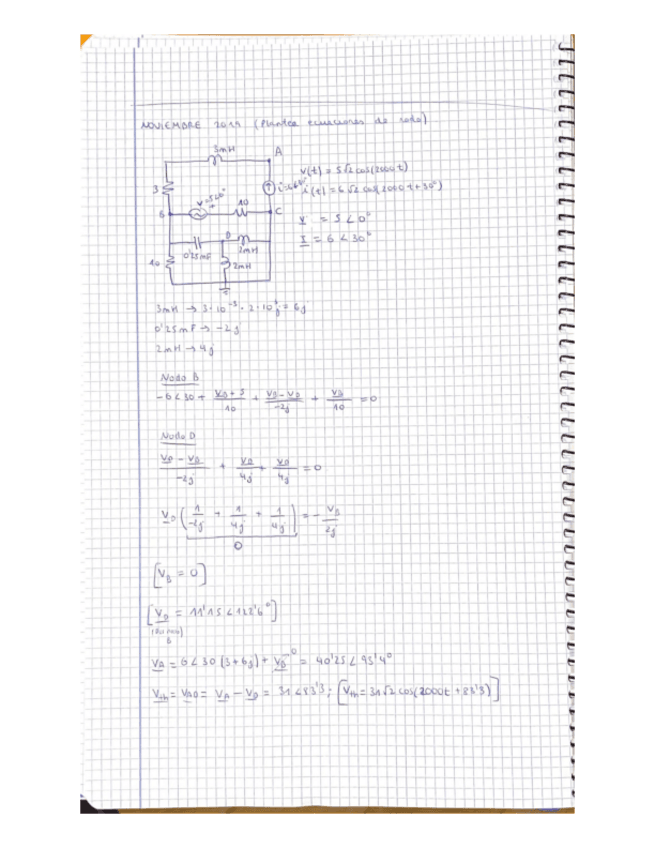 NOVIEMBRE 2019 (Plantea ecuaciones de nodo)
3mH
A
v(t) = 5√2 cos(2000t)
i(t) = 6√2 cos(2000t+30°)
3
10
C
B
V = 5∠0°
I = 6∠30°
D
0'25mF
2mH
10
2mH
3mH → 3·10⁻³·2·10³j = 6j
0'25mF → -2j
2mH → 4j
Nodo B
-6∠30 + (V_B + 5)/10 + (V_B - V_D)/-2j + V_B/10 = 0
Nodo D
(V_D - V_B)/-2j + V_D/4j + V_D/4j = 0
V_D (1/-2j + 1/4j + 1/4j) = - V_B/2j
0
[V_B = 0]
[V_D = 11'15∠122'6°]
V_A = 6∠30 (3+6j) + V_B⁰ = 40'25∠93'4°
V_th = V_AD = V_A - V_D = 31∠83'3; [V_th = 31√2 cos(2000t + 83'3)]